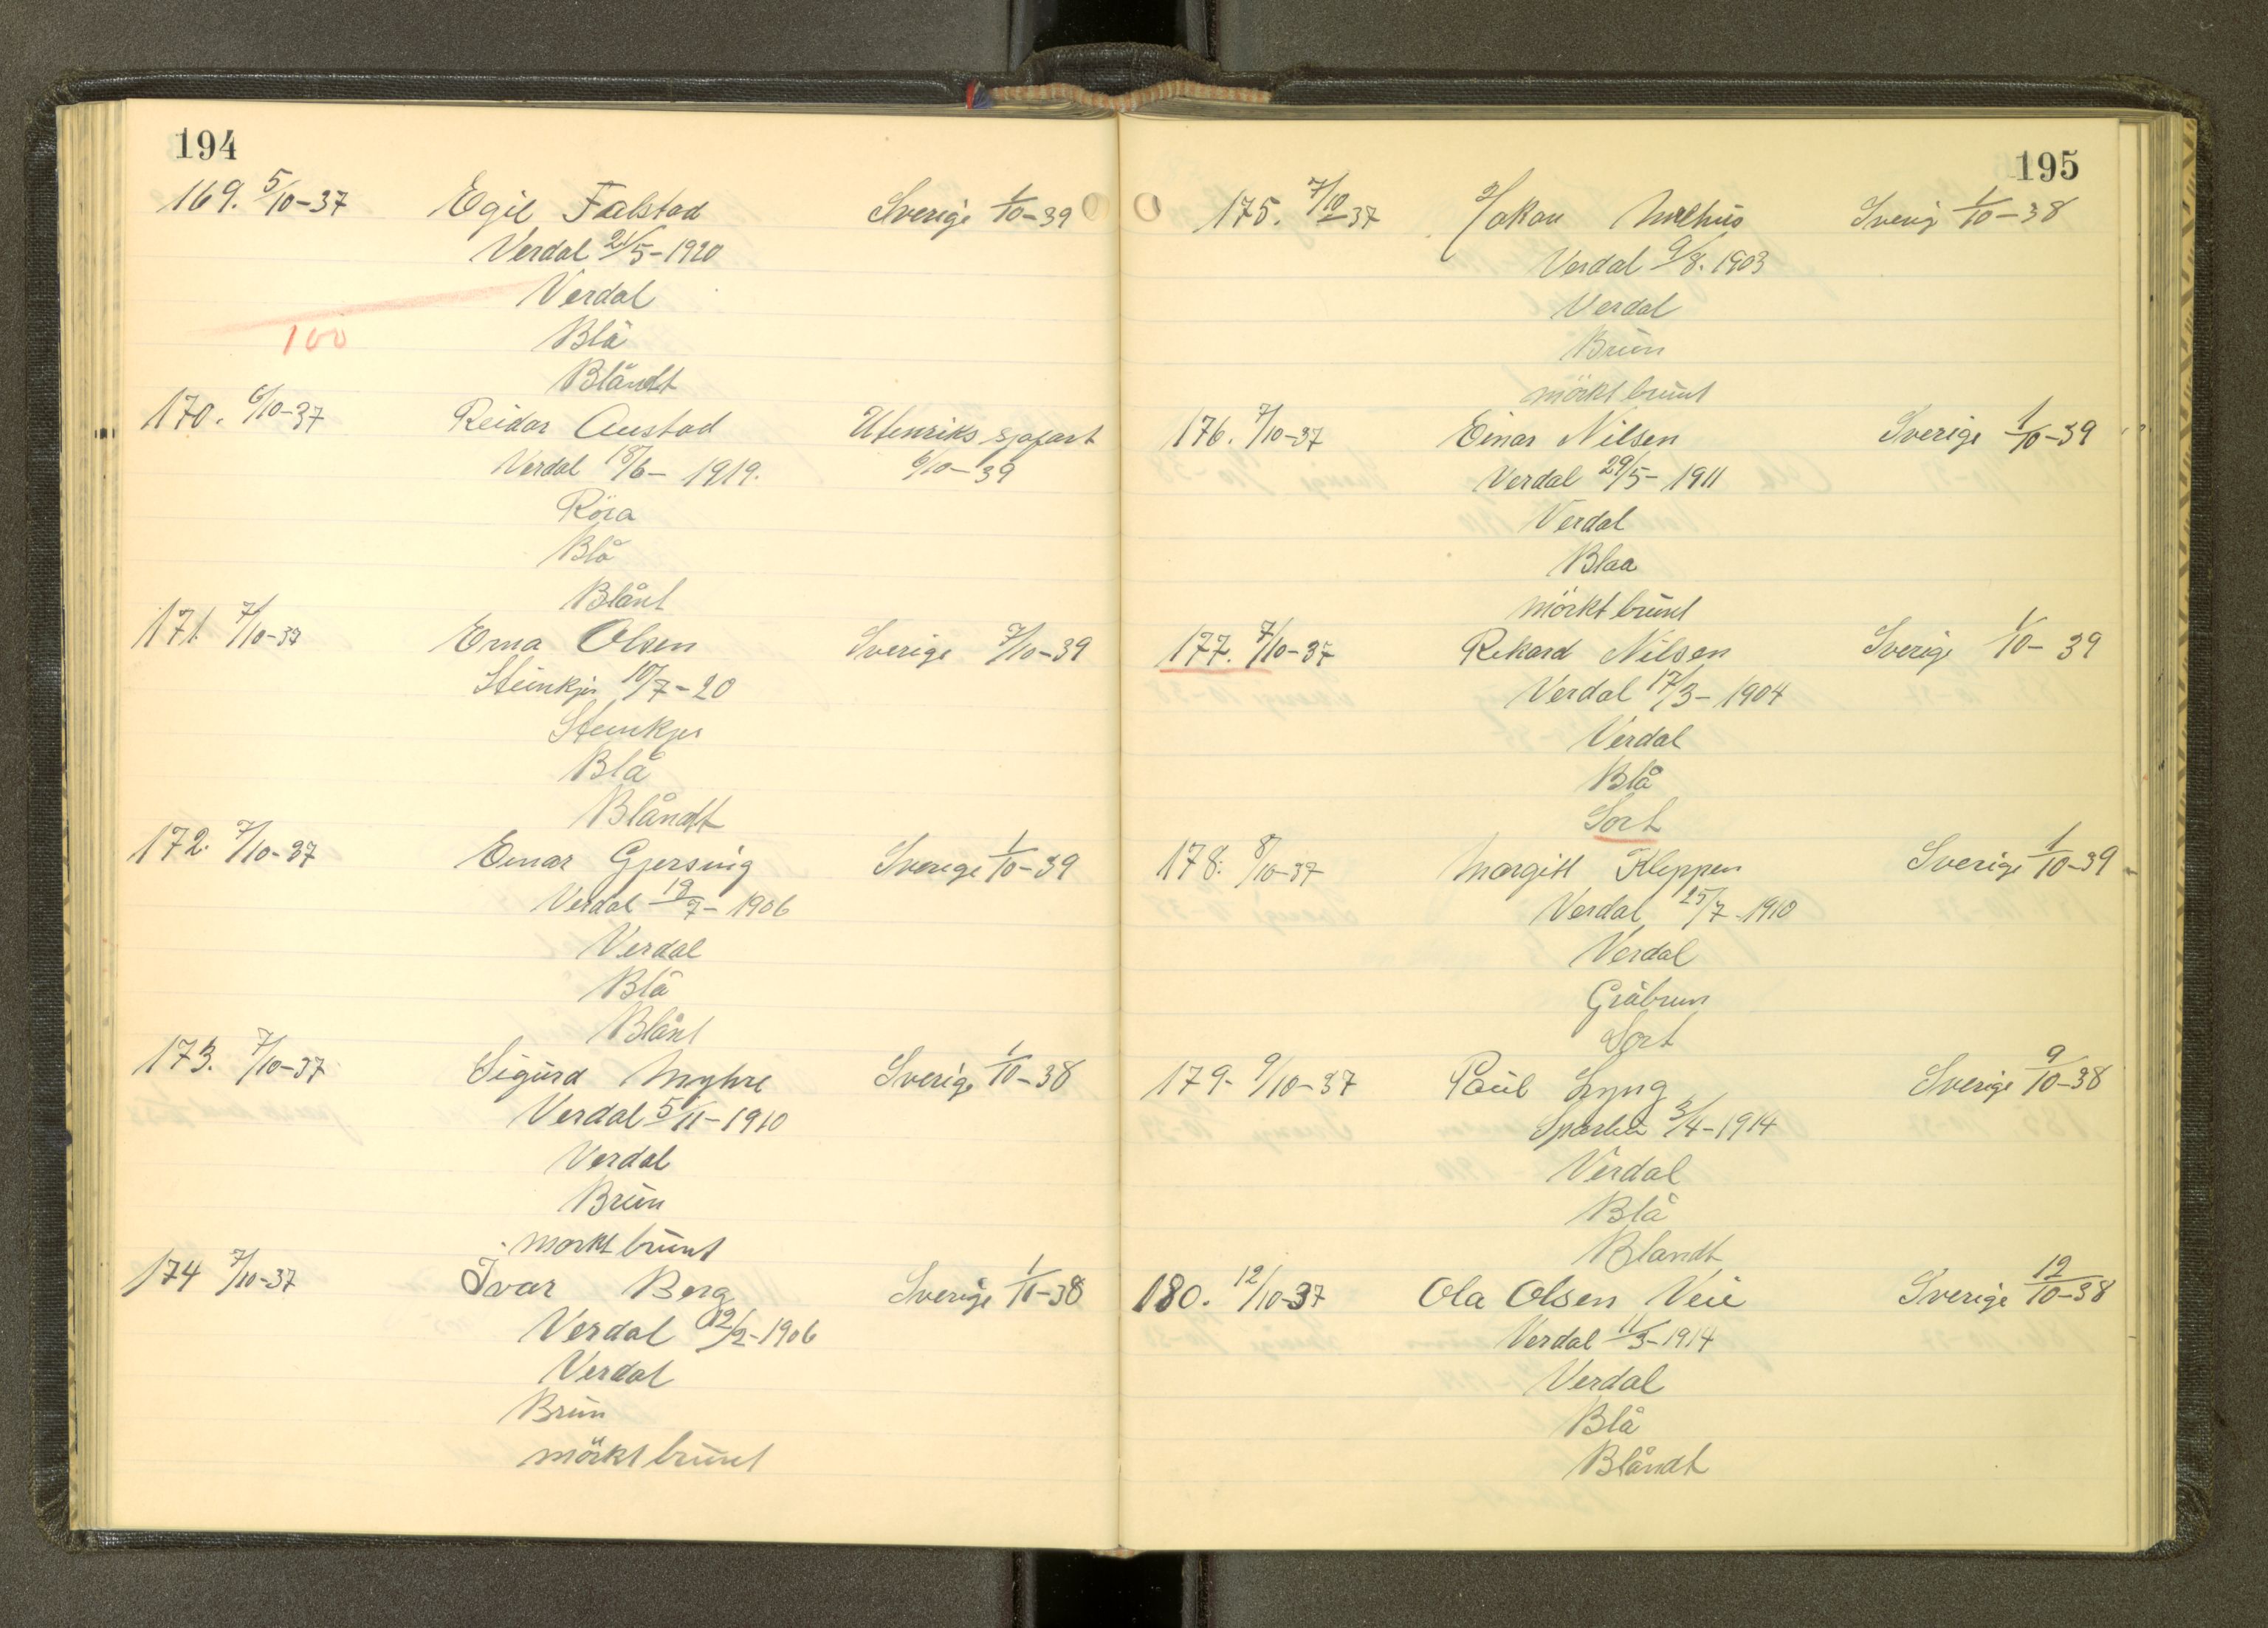 194
169. 5/10-37 Egil Falstad Sverige 1/10-39
Verdal 21/5-1920
Verdal
100
Blå
Blåndt
170. 6/10-37 Reidar Austad Utenriks sjøfart
Verdal 18/6- 1919. 6/10-39
Röra
Blå
Blånt
171. 7/10-37 Erna Olsen Sverige 7/10-39
Steinkjer 10/7-20
Steinkjer
Blå
Blåndt
172. 7/10-37 Einar Gjersing Sverige 1/10-39
Verdal 19/7- 1906
Verdal
Blå
Blånt
173. 7/10-37 Sigurd Myhre Sverige 1/10-38
Verdal 5/11-1910
Verdal
Brun
morkt brunt
174 7/10-37 Ivar Berg Sverige 1/11-38
Verdal 12/2-1906
Verdal
Brun
mörkt brunt
195
175. 7/10-37 Hakon Melhus Sverig 1/10-38
Verdal 9/8. 1903
Verdal
Brun
mörkt brunt
176. 7/10-37 Einar Nilsen Sverige 1/10-39
Verdal 29/5- 1911
Verdal
Blaa
mörkt brunt
177. 7/10-37 Rikard Nilsen Sverige 1/10- 39
Verdal 17/3- 1904
Verdal
Blå
Sort
178. 8/10-37 Margitt Kleppen Sverige 1/10-39
Verdal 25/7-1910
Verdal
Gråbrun
Sort
179- 9/10-37 Paul Lyng Sverige 9/10-38
Sparbu 3/4-1914
Verdal
Blå
Blandt
180. 12/10-37 Ola Olsen Veie Sverige 12/10-38
Verdal 11/3-1914
Verdal
Blå
Blåndt